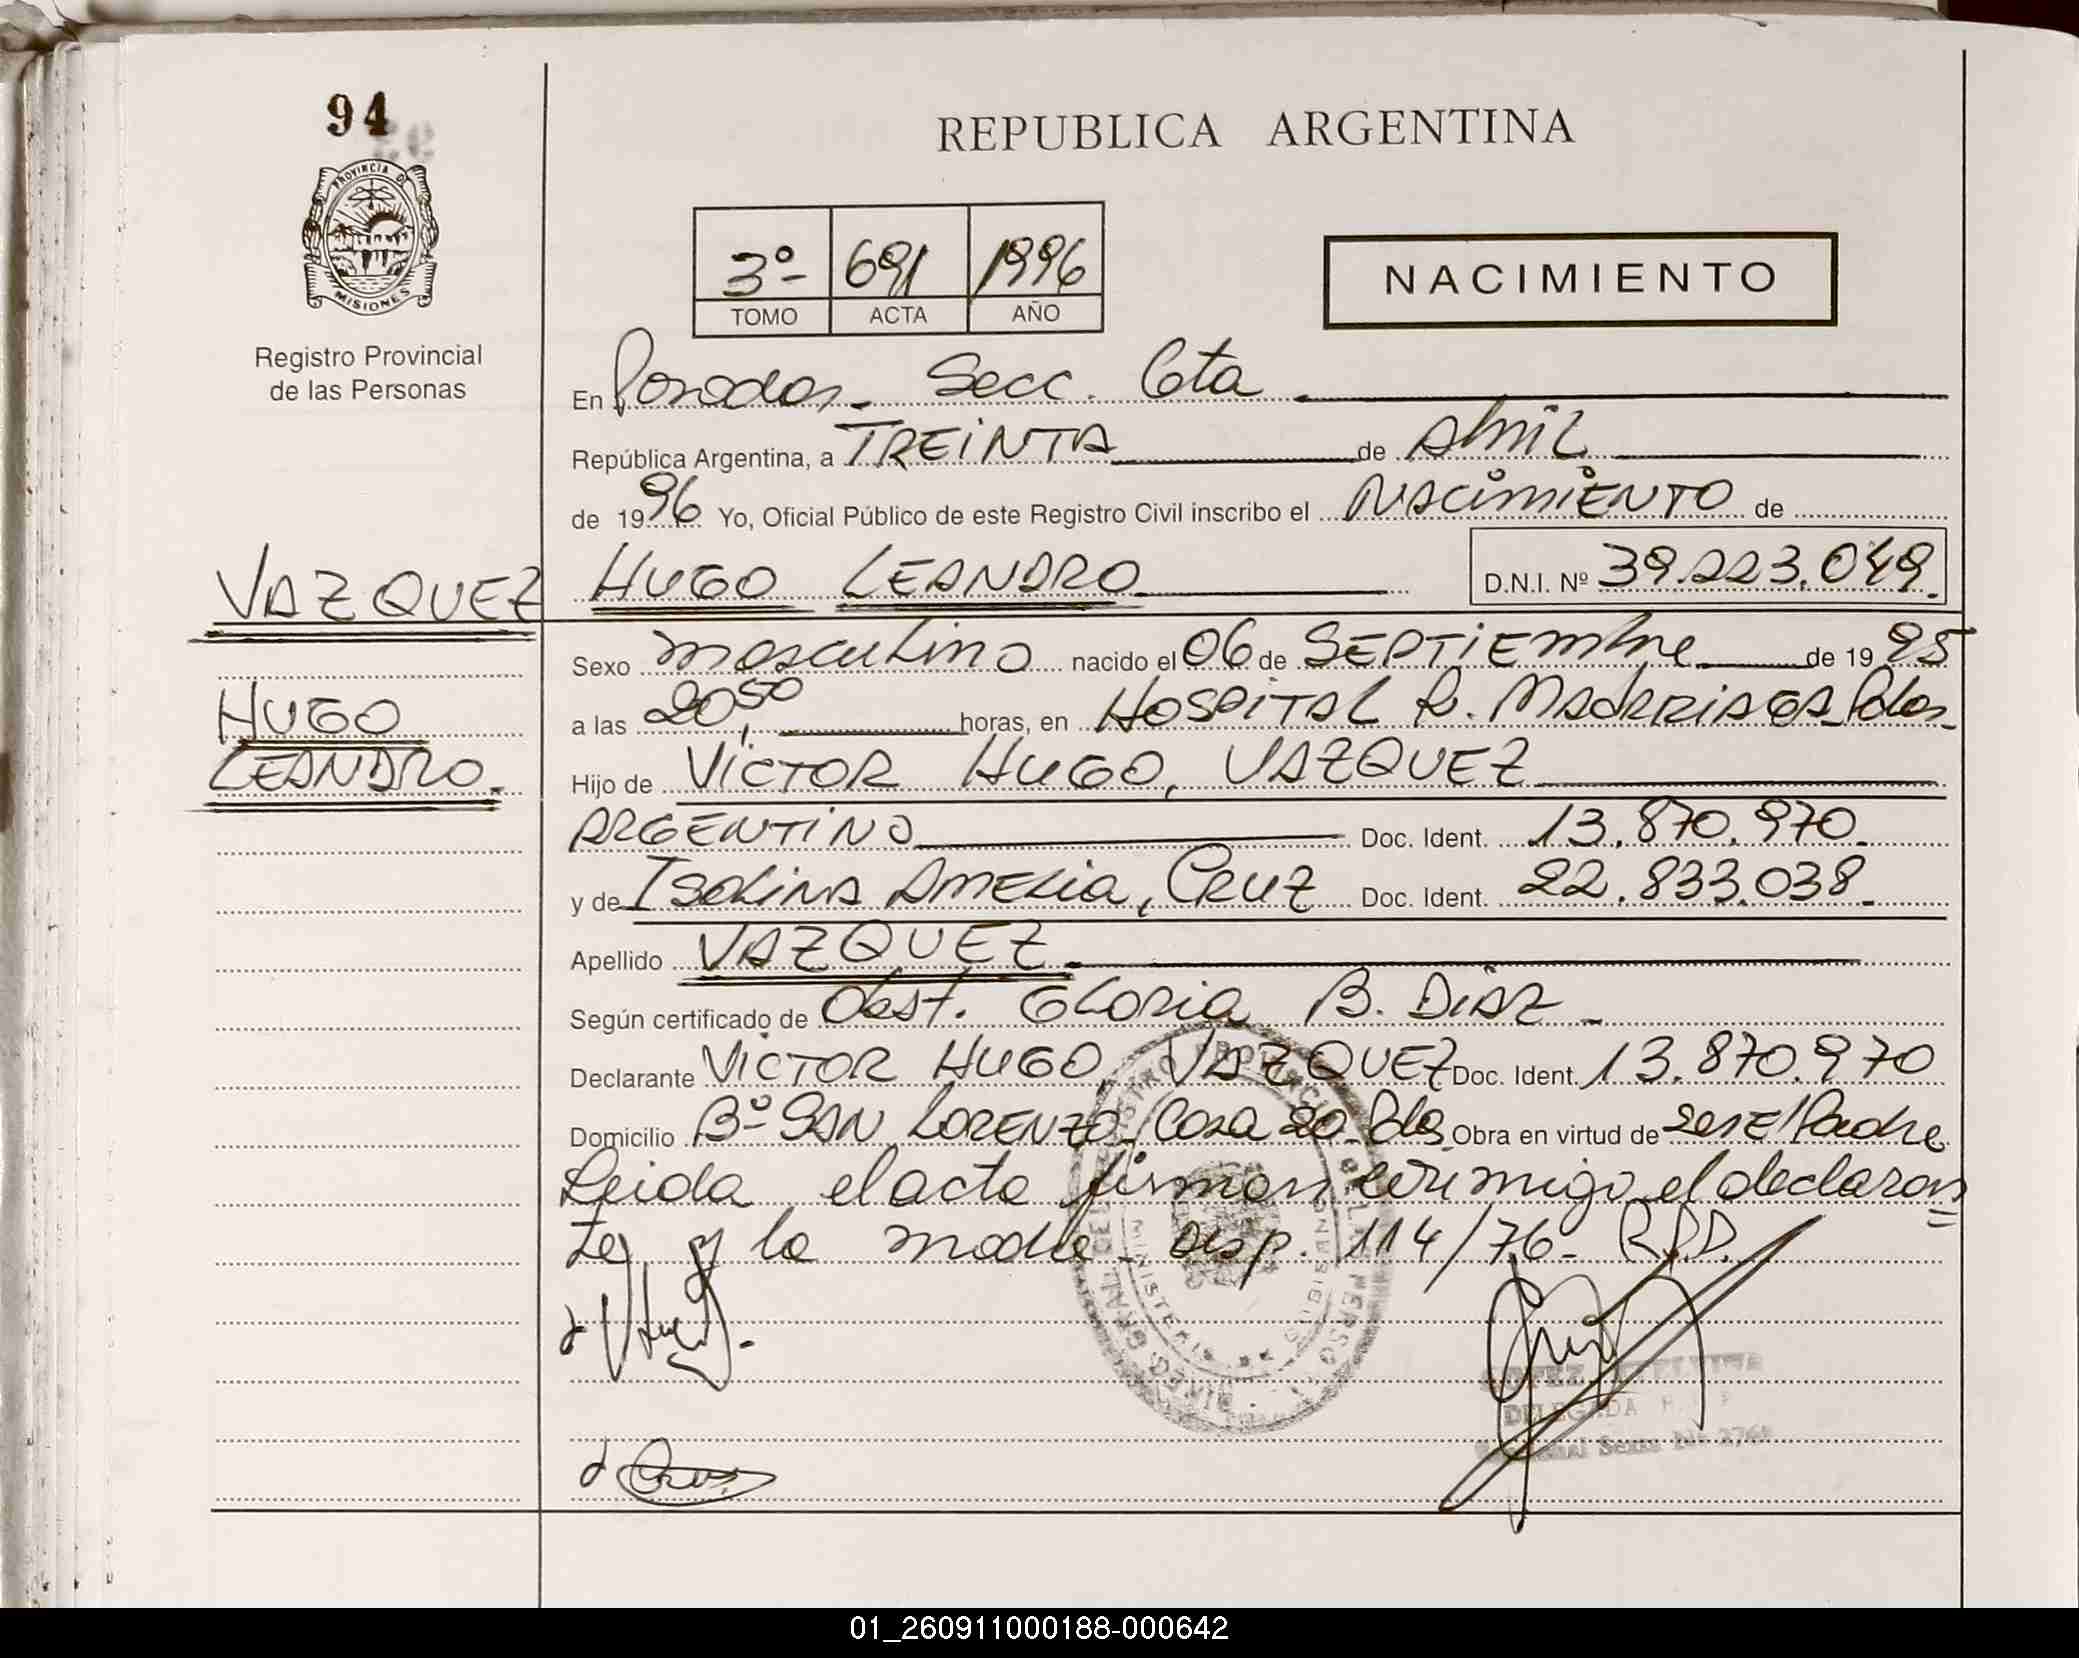 94
PROVINCIA D
MISIONES
Registro Provincial
de las Personas
REPUBLICA ARGENTINA
3º- 691 1996
TOMO ACTA AÑO
NACIMIENTO
En Posadas. Secc. 6ta
República Argentina, a TREINTA de Abril
de 1996 Yo, Oficial Público de este Registro Civil inscribo el NACIMIENTO de
VAZQUEZ HUGO LEANDRO D.N.I. Nº 39.223.049.
Sexo masculino nacido el 06 de SEPTIEmbre de 1995
HUGO
a las 20,50 horas, en HOSPITAL R. MADARIAGA Pdas
LEANDRO.
Hijo de VICTOR HUGO, VAZQUEZ
ARGENTINO Doc. Ident. 13.870.970.
y de ISOLINA AMELIA, CRUZ Doc. Ident. 22.833.038.
Apellido VAZQUEZ.
Según certificado de Obst. GLORIA B. DIAZ
Declarante VICTOR HUGO, VAZQUEZ Doc. Ident. 13.870.970
Domicilio Bº SAN LORENZO, Casa 20 Pdas Obra en virtud de ser El Padre
Leida el acta firman conmigo el declaran=
te y la madre. Disp. 114/76- R.P.P.
DELEGADA
01_260911000188-000642